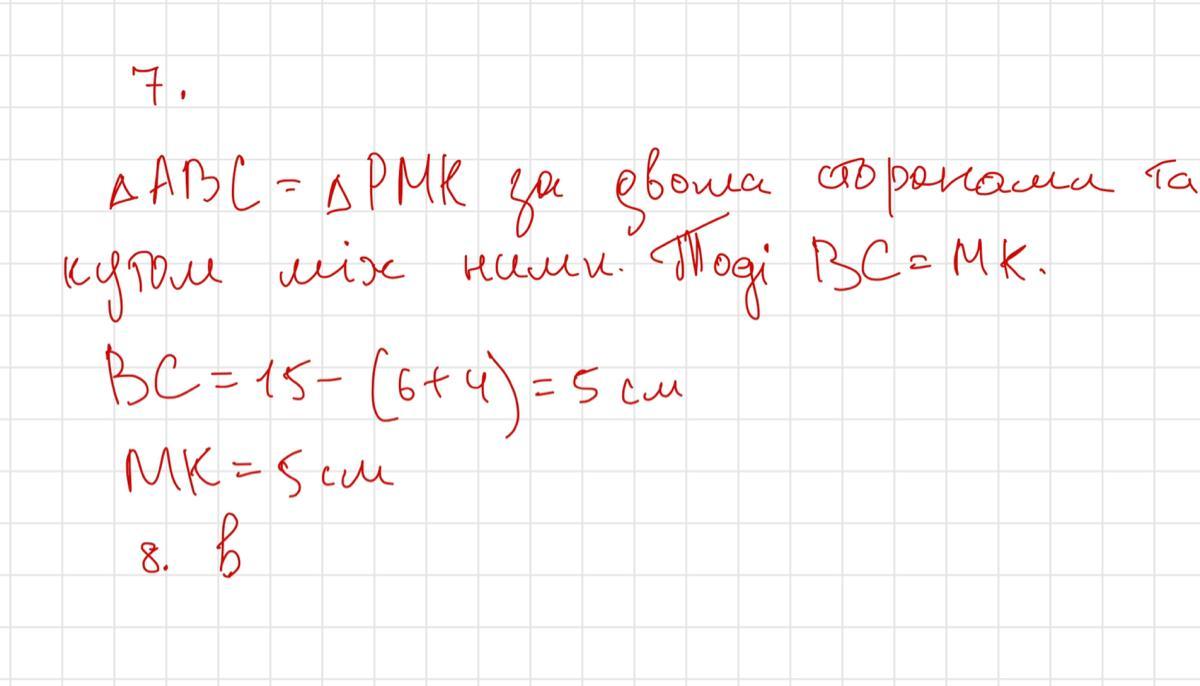 7.
△ABC = △PMK за двома сторонами та
кутом між ними. Тоді BC = MK.
BC = 15 - (6 + 4) = 5 см
MK = 5 см
8. в